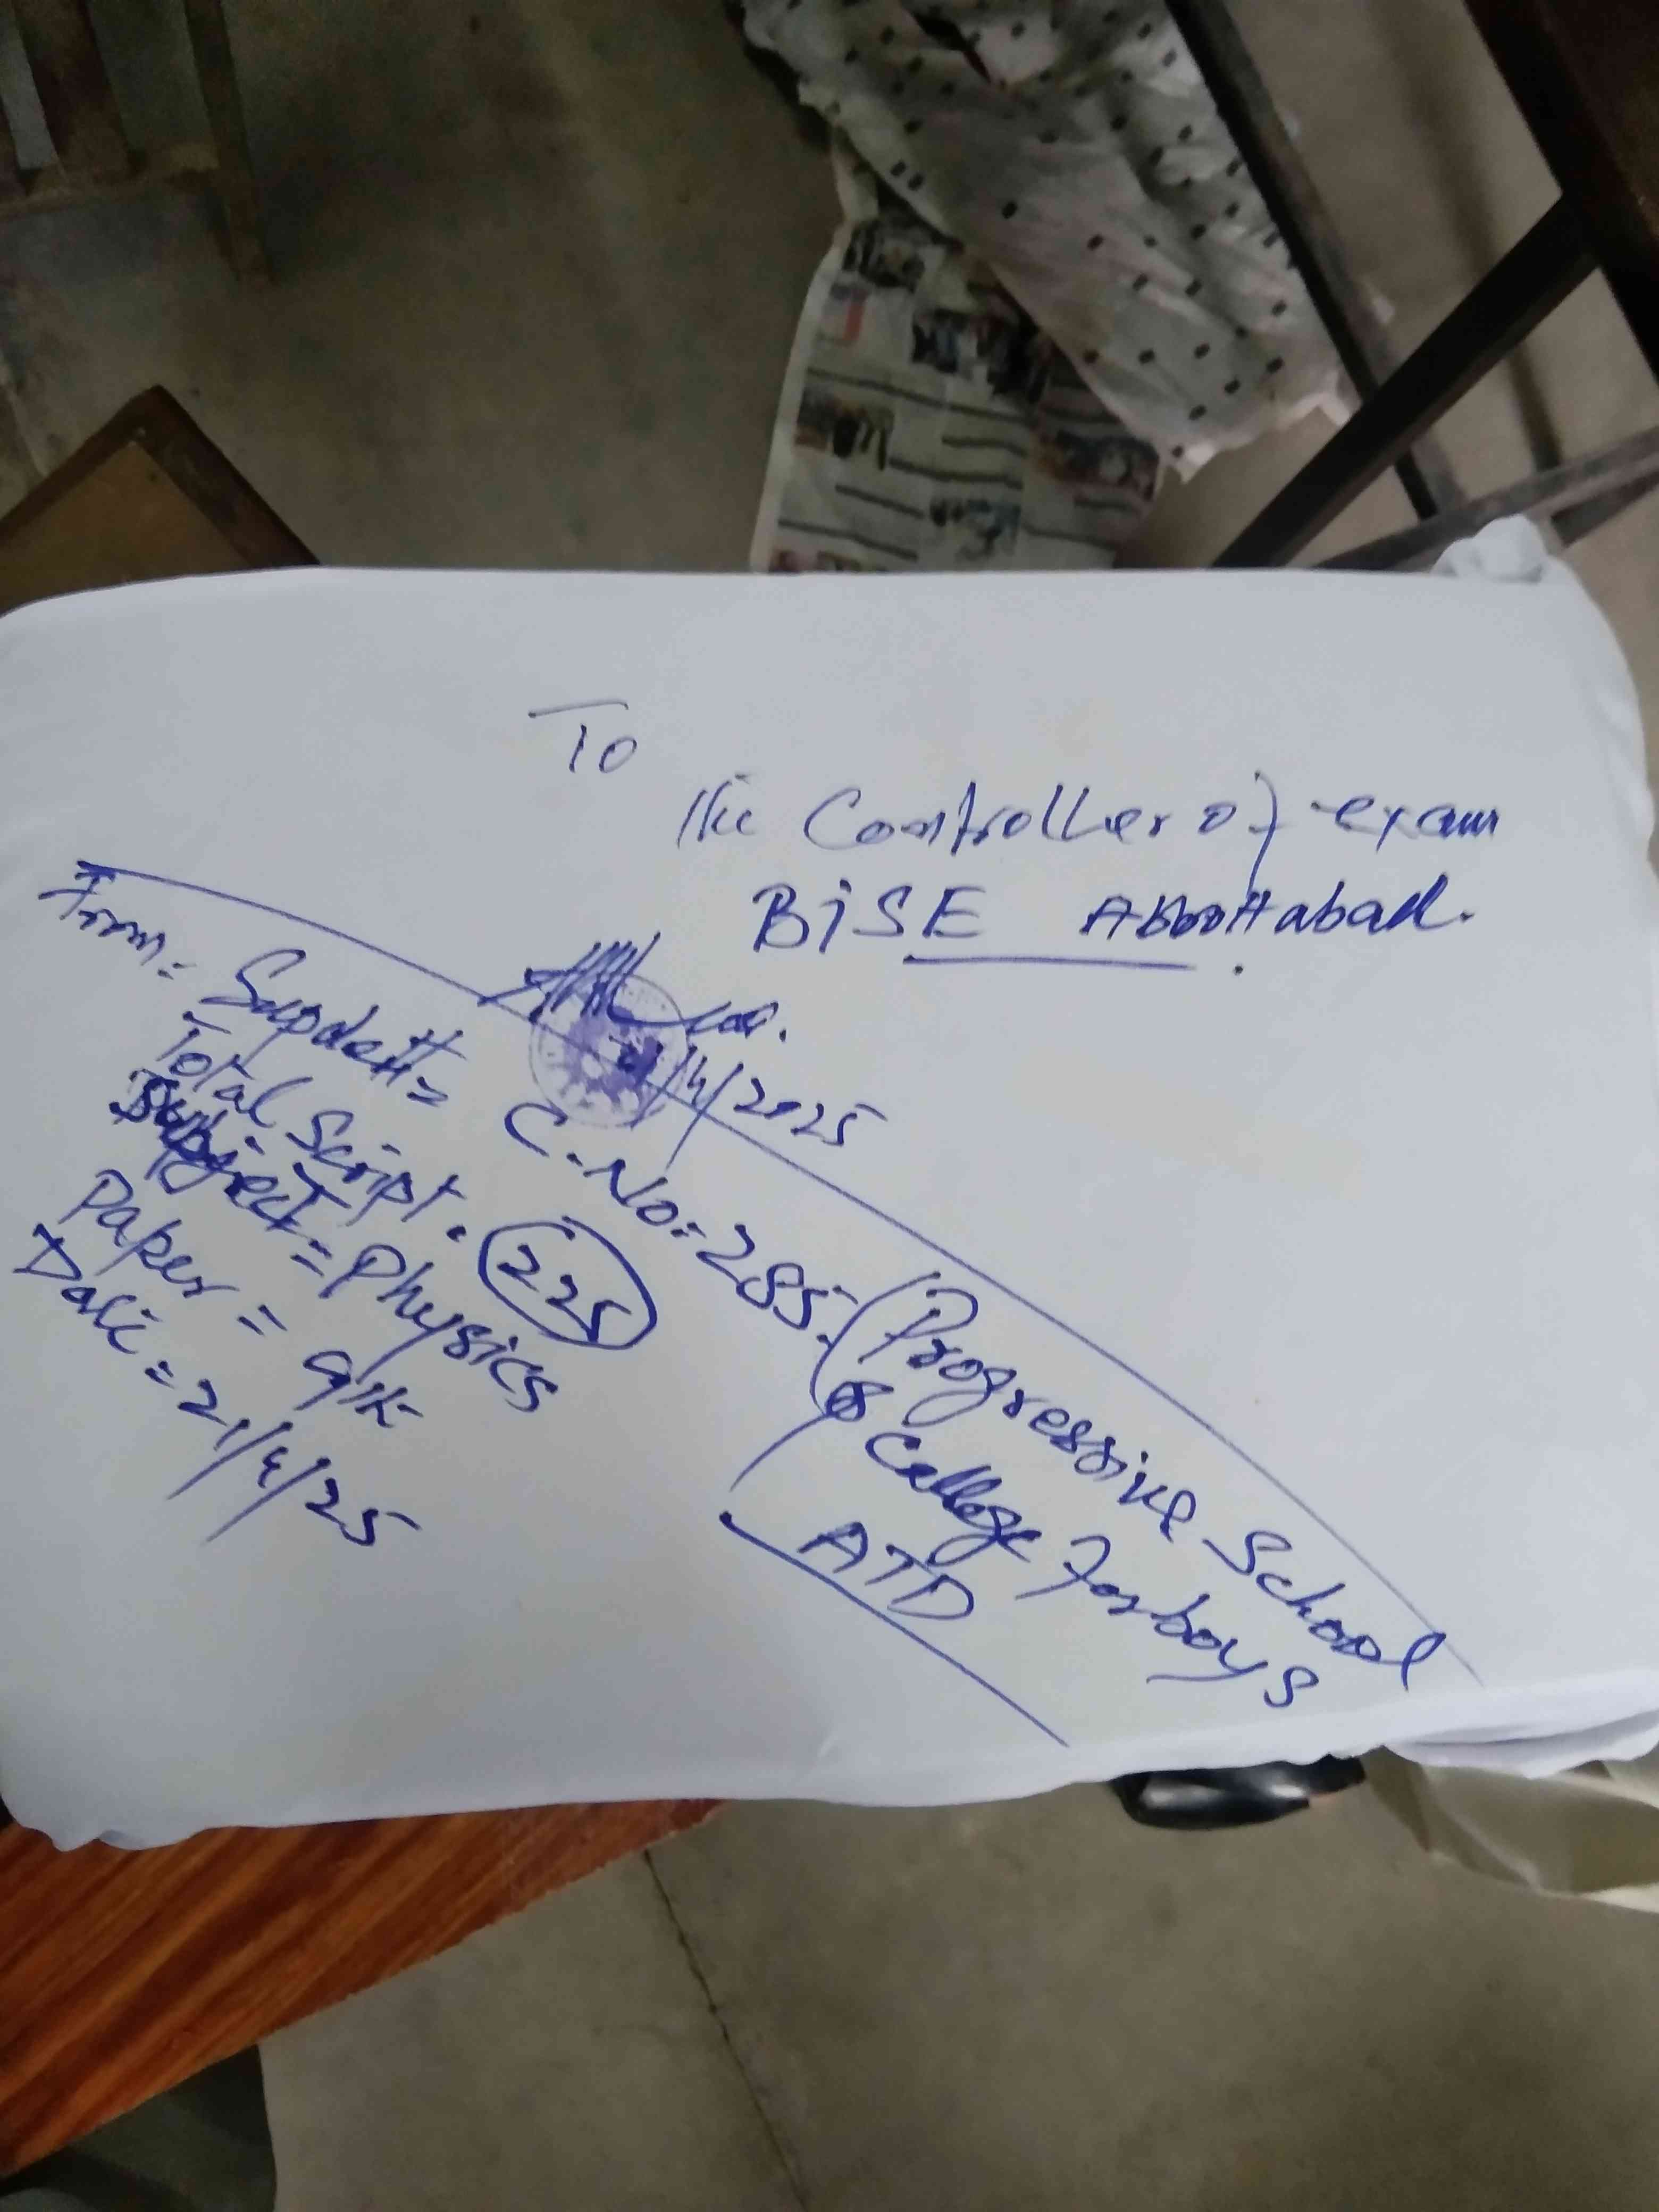 To
The Controller of exam
BISE Abbottabad.
From: Supdett=
21/4/2025
C.No=285.
(Progressive School
& College For boys
ATD
Total Script. 225
Subject = Physics
Paper = 9th
Date = 21/4/25